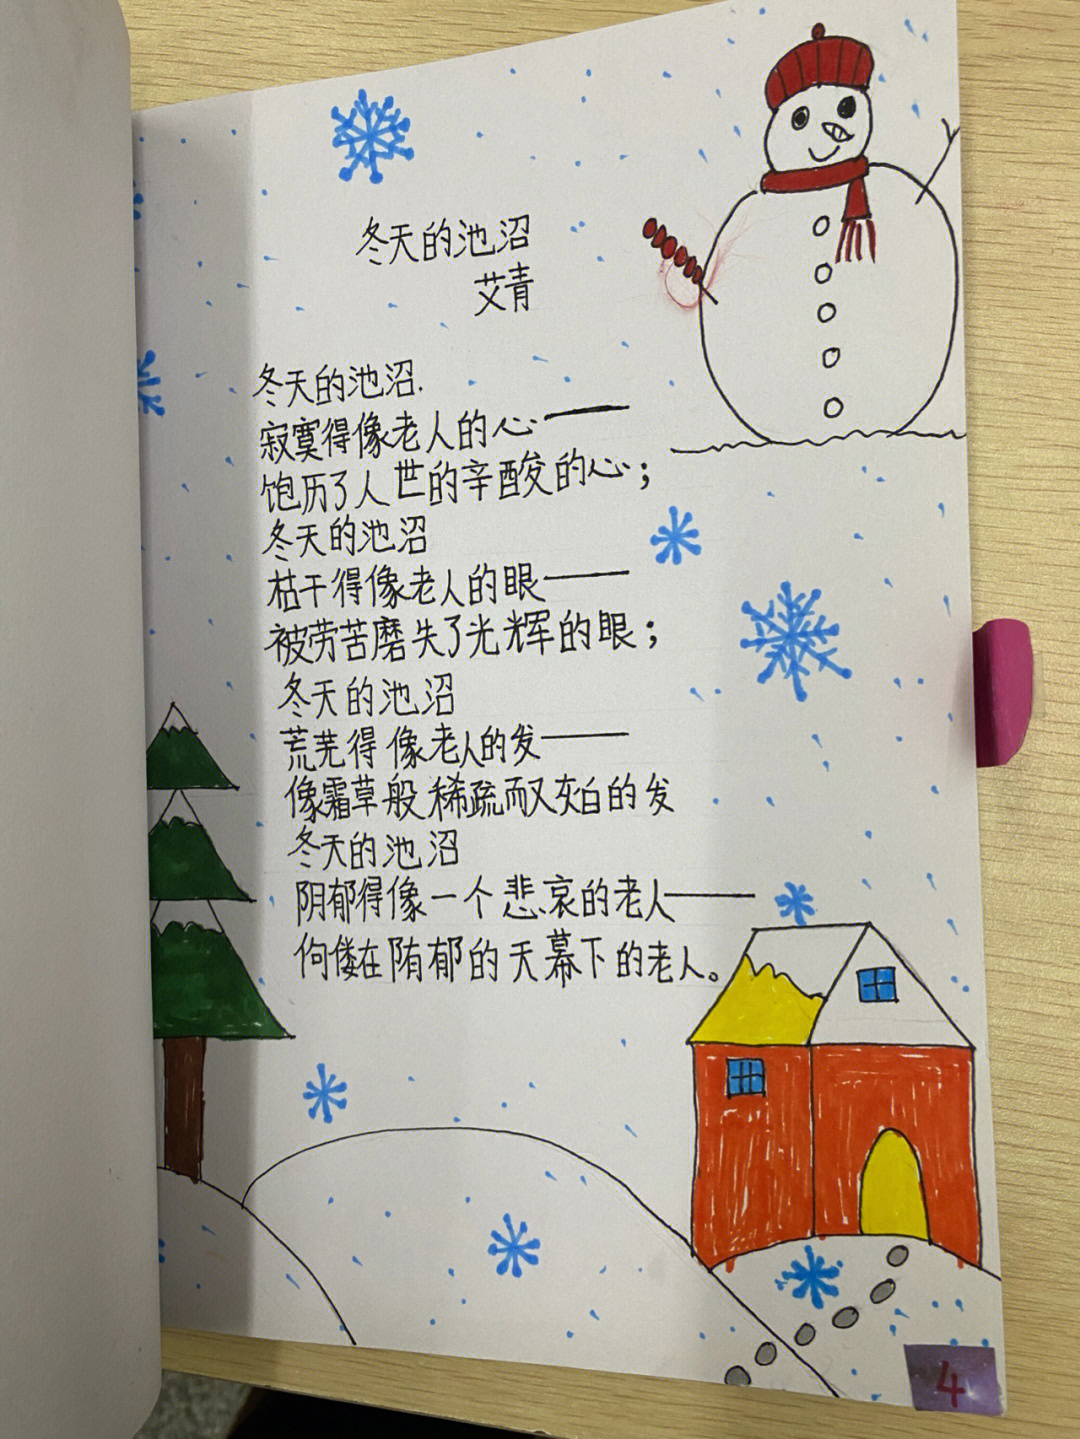 冬天的池沼
艾青
冬天的池沼.
寂寞得像老人的心——
饱历了人世的辛酸的心；
冬天的池沼
枯干得像老人的眼——
被劳苦磨失了光辉的眼；
冬天的池沼
荒芜得像老人的发——
像霜草般稀疏而又灰白的发
冬天的池沼
阴郁得像一个悲哀的老人——
佝偻在阴郁的天幕下的老人。
4